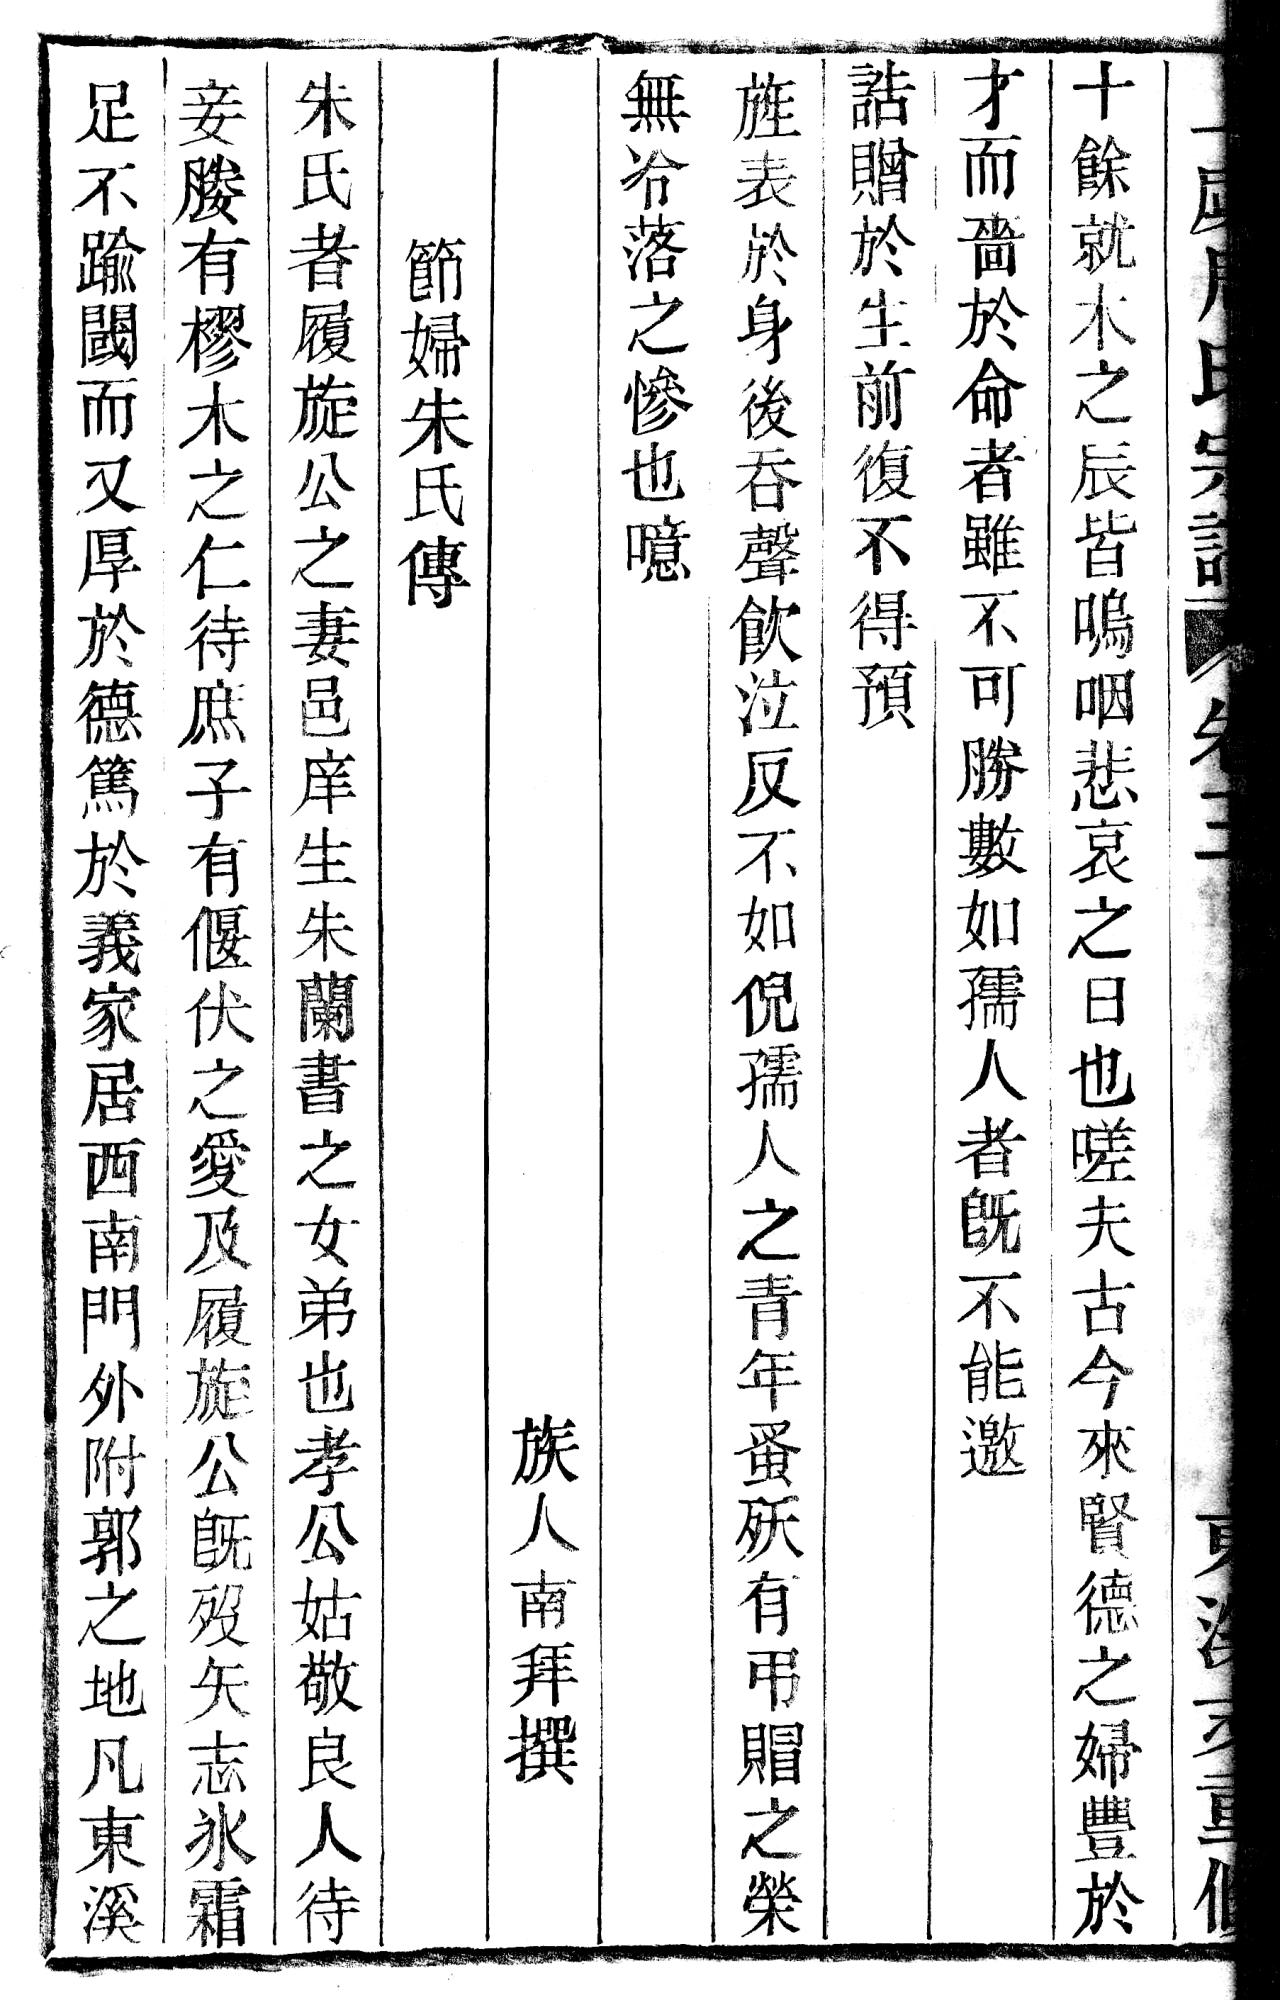 氏宗譜 卷三 東溪 重修
十餘就木之辰皆嗚咽悲哀之日也嗟夫古今來賢德之婦豐於
才而嗇於命者雖不可勝數如孺人者旣不能邀
誥贈於生前復不得預
旌表於身後吞聲飮泣反不如倪孺人之青年蚤殀有弔賵之榮
無冷落之慘也噫
族人南拜撰
節婦朱氏傳
朱氏者履旋公之妻邑庠生朱蘭書之女弟也孝公姑敬良人待
妾媵有樛木之仁待庶子有偃伏之愛及履旋公旣歿矢志氷霜
足不踰閾而又厚於德篤於義家居西南門外附郭之地凡東溪